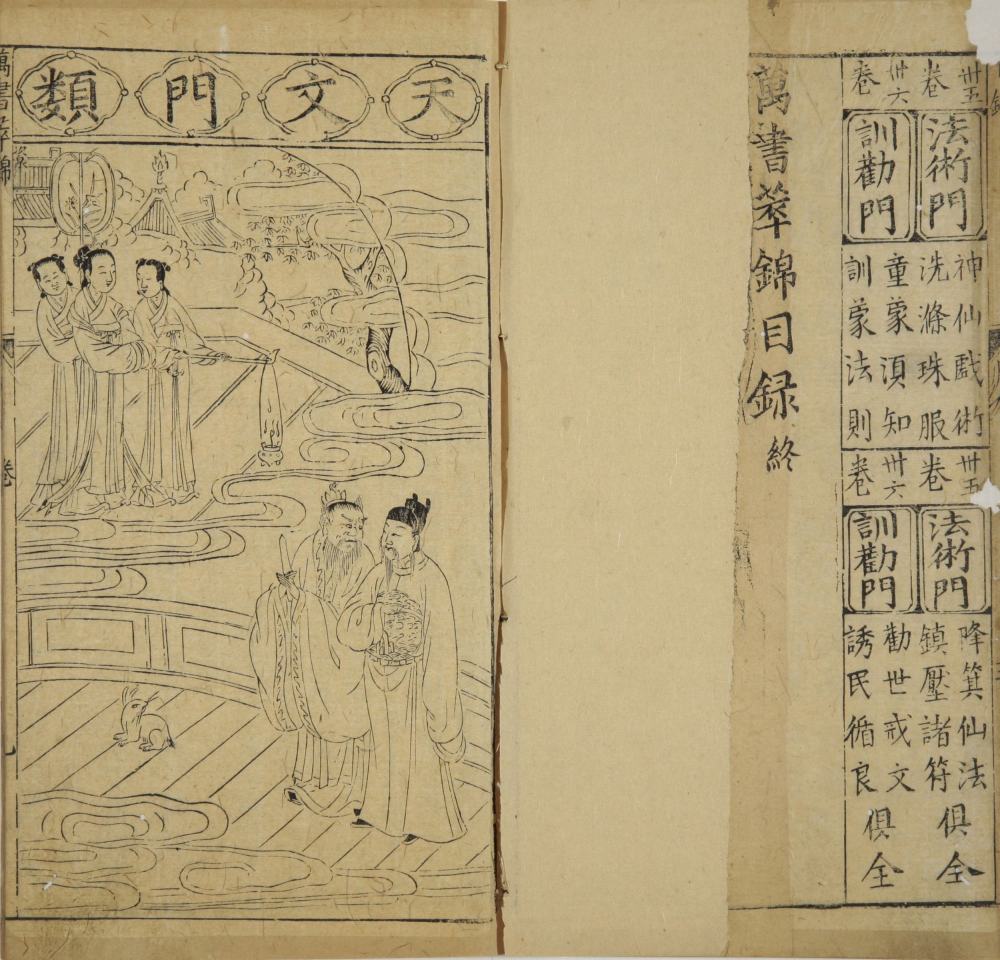 卅五
卷
法術門
神仙戲術
洗滌珠服
卅六
卷
訓勸門
童蒙須知
訓蒙法則
卅五
卷
法術門
降箕仙法
鎮壓諸符
俱全
卅六
卷
訓勸門
勸世戒文
誘民循良
俱全
萬書萃錦目録終
天文門類
萬書萃錦
卷